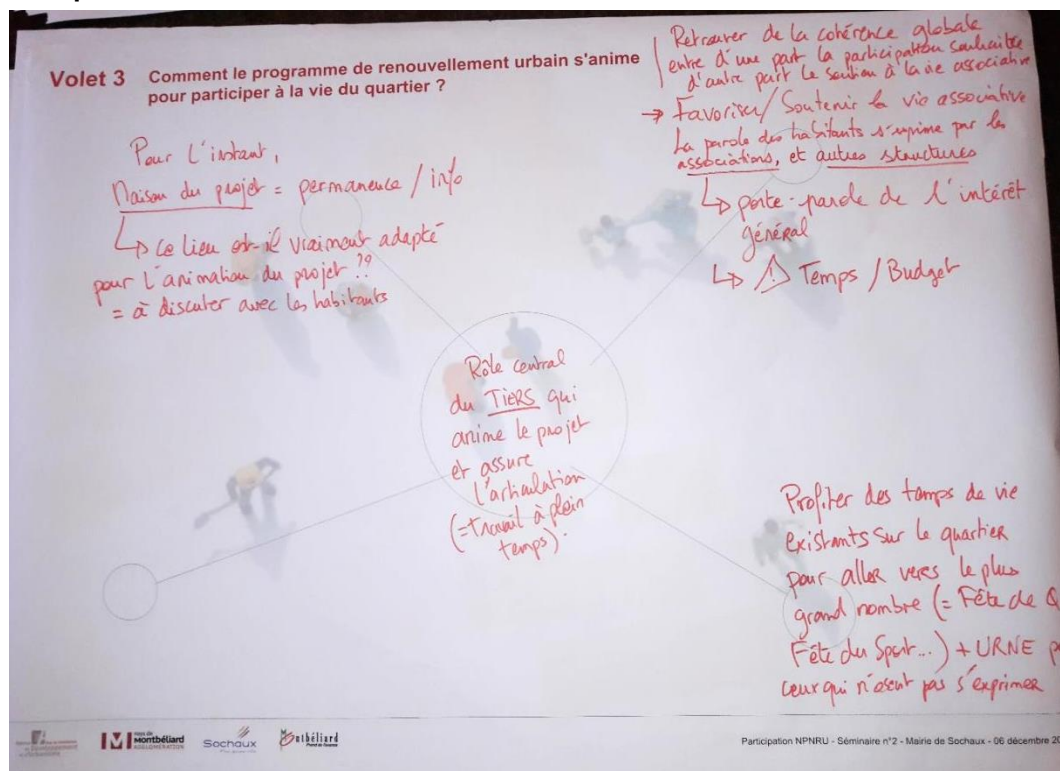 Volet 3 Comment le programme de renouvellement urbain s'anime
pour participer à la vie du quartier ?
Pour l'instant,
Maison du projet = permanence / info
↳ Ce lieu est-il vraiment adapté
pour l'animation du projet ??
= à discuter avec les habitants
Retrouver de la cohérence globale
entre d'une part la participation souhaitée
d'autre part le soutien à la vie associative
→ Favoriser / Soutenir la vie associative
La parole des habitants s'exprime par les
associations, et autres structures
↳ porte-parole de l'intérêt
général
↳ ⚠ Temps / Budget
Rôle central
du TIERS qui
anime le projet
et assure
l'articulation
(= travail à plein
temps).
Profiter des temps de vie
existants sur le quartier
pour aller vers le plus
grand nombre (= Fête de Q
Fête du Sport...) + URNE p
ceux qui n'osent pas s'exprimer
Montbéliard
AGGLOMÉRATION
Sochaux
Montbéliard
Participation NPNRU - Séminaire n°2 - Mairie de Sochaux - 06 décembre 20